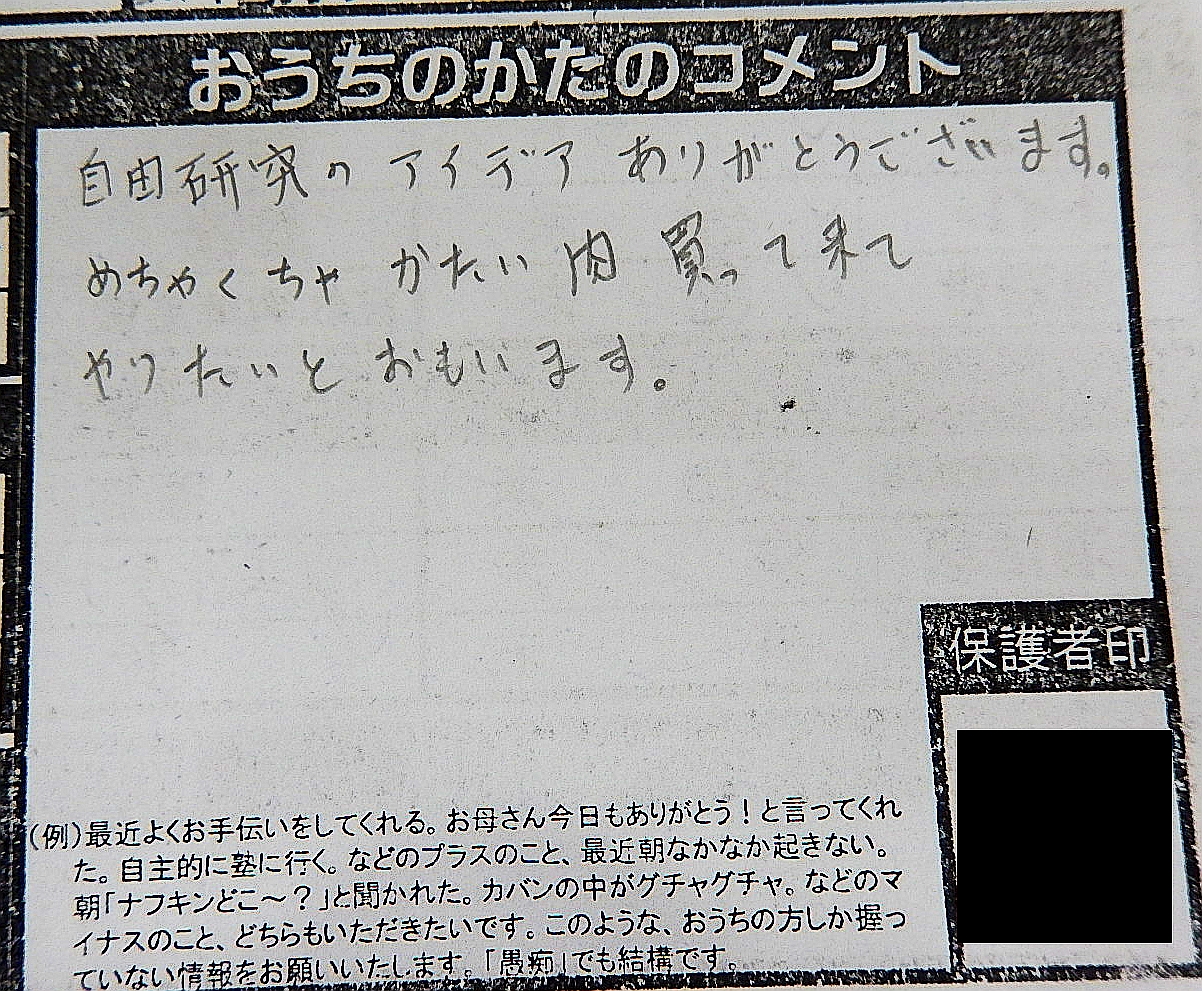 おうちのかたのコメント
自由研究の アイデア ありがとうございます。
めちゃくちゃ かたい 肉 買って来て
やりたいと おもいます。
保護者印
(例)最近よくお手伝いをしてくれる。お母さん今日もありがとう!と言ってくれ
た。自主的に塾に行く。などのプラスのこと、最近朝なかなか起きない。
朝「ナフキンどこ～?」と聞かれた。カバンの中がグチャグチャ。などのマ
イナスのこと、どちらもいただきたいです。このような、おうちの方しか握っ
ていない情報をお願いいたします。「愚痴」でも結構です。